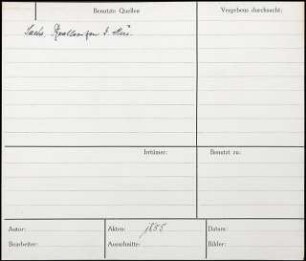 Benutzte Quellen
Vergebens durchsucht:
Sachs,
Irrtümer:
Benutzt zu:
Autor:
Akten: 1855
Datum:
Bearbeiter:
Ausschnitte:
Bilder: